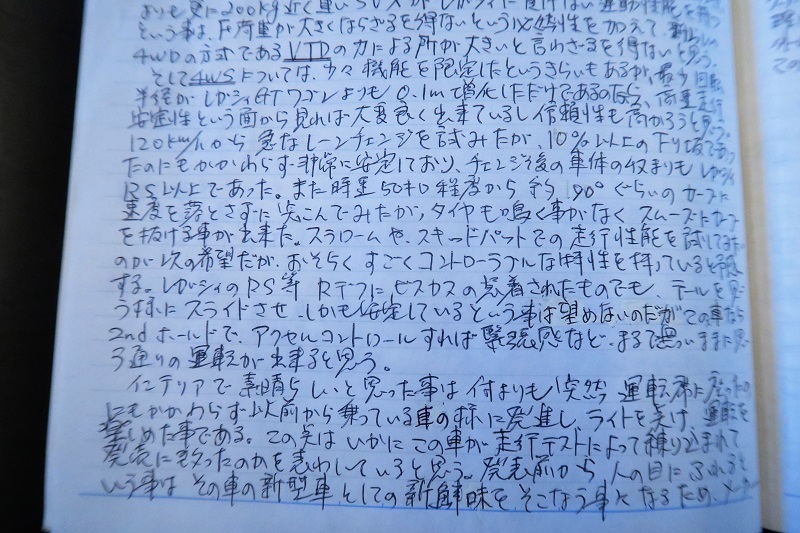 よりも更に200kg近く重いSVXがレガシィに負けない運動性能を
という事は、F荷重が大きくならざるを得ないという必然性を加えて、新しい
4WDの方式であるVTDの力による所が大きいと言わざるを得ないと思う。
そして4WSについては、少々機能を限定したというきらいもあるが、最少回転
半径がレガシィGTワゴンよりも0.1m増化しただけであるのなら、
安定性という面から見れば大変良く出来ているし信頼性も高かろうと思う。
120km/hから急なレーンチェンジを試みたが、10%以上の下り坂であっ
たのにもかかわらず非常に安定しており、チェンジ後の車体の収まりもレガシィ
RS以上であった。また時星50キロ程度から 90°ぐらいのカーブに
速度を落とさずに突こんでみたが、タイヤも鳴く事がなくスムーズにカーブ
を抜ける事が出来た。スラロームや、スキッドパットでの走行性能を試してみたい
のが次の希望だが、おそらくすごくコントローラブルな特性を持っていると予想
する。レガシィのRS等 Rデフにビスカスの装着されたものでも、テールを思
う様にスライドさせ、しかも安定しているという事は望めないのだがこの車なら
2ndホールドで、アクセルコントロールすれば緊張感など、まるで無いままに思
う通りの運転が出来ると思う。
インテリアで素晴らしいと思った事は何よりも突然運転席に座ったの
にもかかわらず以前から乗っている車の様に発進し、ライトを点け運転を
楽しめた事である。この点はいかにこの車が走行テストによって練り込まれて
発売に至ったのかを表わしていると思う。発表前から人の目にふれると
いう事はその車の新型車としての新鮮味を、そこなう事になるため、